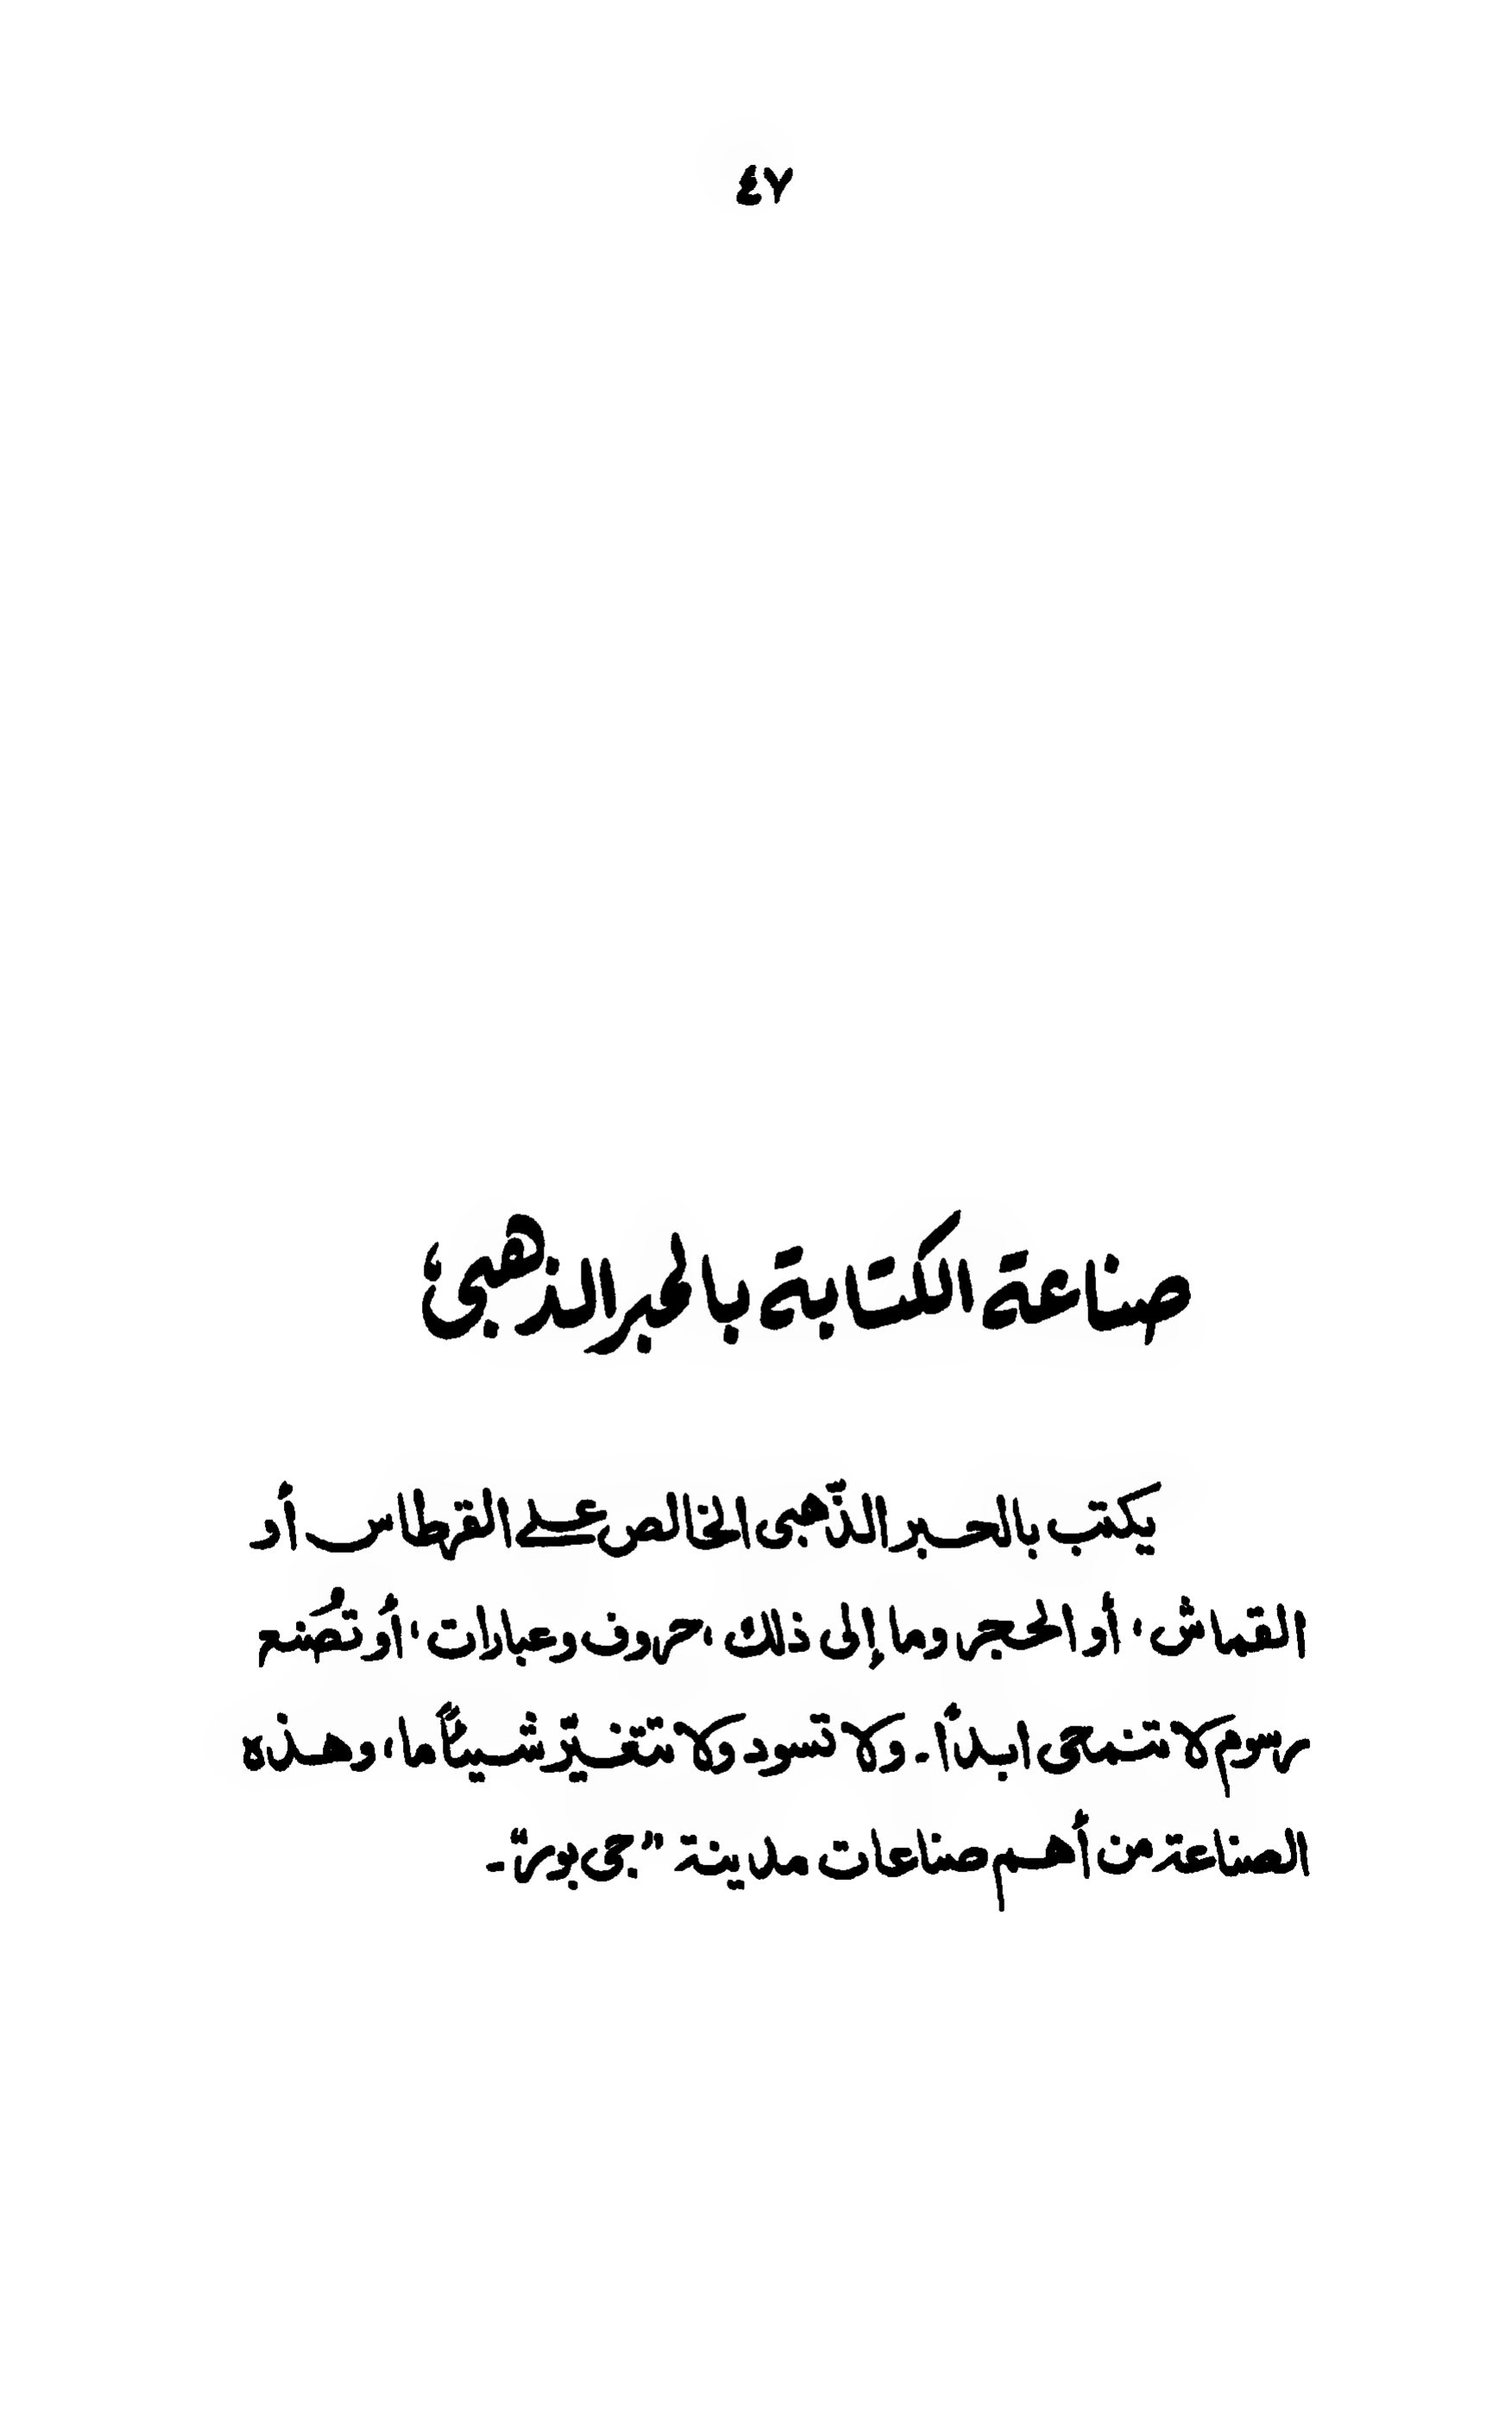 ٤٧
صناعة الكتابة بالحبر الذهبىّ
يكتب بالحبر الذّهبى الخالص على القرطاس أو
القماش، أو الحجر، وما إلى ذلك، حروف وعبارات، أو تُصنع
رسوم لا تنمحى ابدًا۔ ولا تسود ولا تتغيّر شيئًا ما، وهذه
الصناعة من أهم صناعات مدينة "جى بور"۔